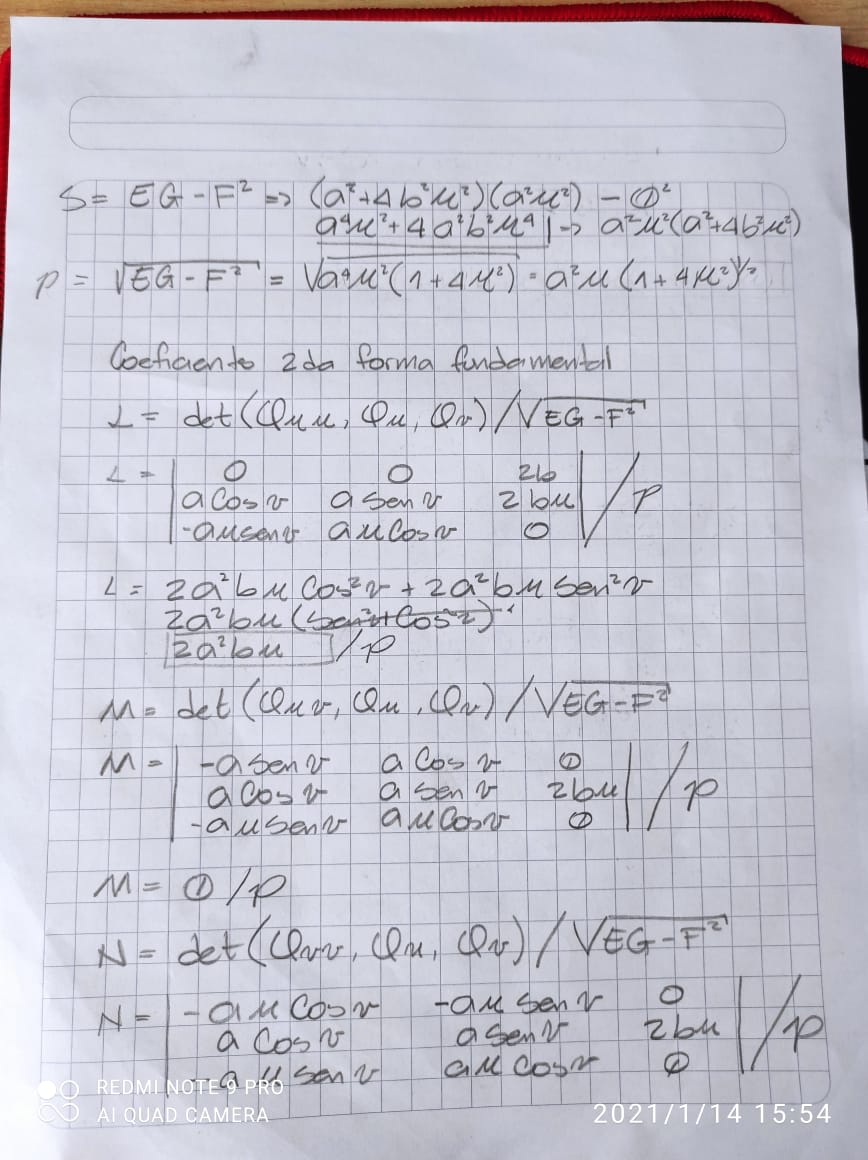 S = EG - F² => (a²+4b²u²)(a²u²) - 0²
a⁴u²+4a²b²u⁴ | -> a²u²(a²+4b²u²)
p = √EG - F² = √a⁴u²(1+4u²) = a²u(1+4u²)½
Coeficiente 2da forma fundamental
L = det(φuu, φu, φv)/√EG-F²
L = | 0 0 2b
a cos v a sen v 2bu | / p
-au sen v au cos v 0
L = 2a²bu cos²v + 2a²bu sen²v
2a²bu (sen²+cos²)
2a²bu / p
M = det(φuv, φu, φv)/√EG-F²
M = | -a sen v a cos v 0
a cos v a sen v 2bu | / p
-au sen v au cos v 0
M = 0/p
N = det(φvv, φu, φv)/√EG-F²
N = | -au cos v -au sen v 0
a cos v a sen v 2bu | / p
-au sen v au cos v 0
REDMI NOTE 9 PRO
AI QUAD CAMERA
2021/1/14 15:54